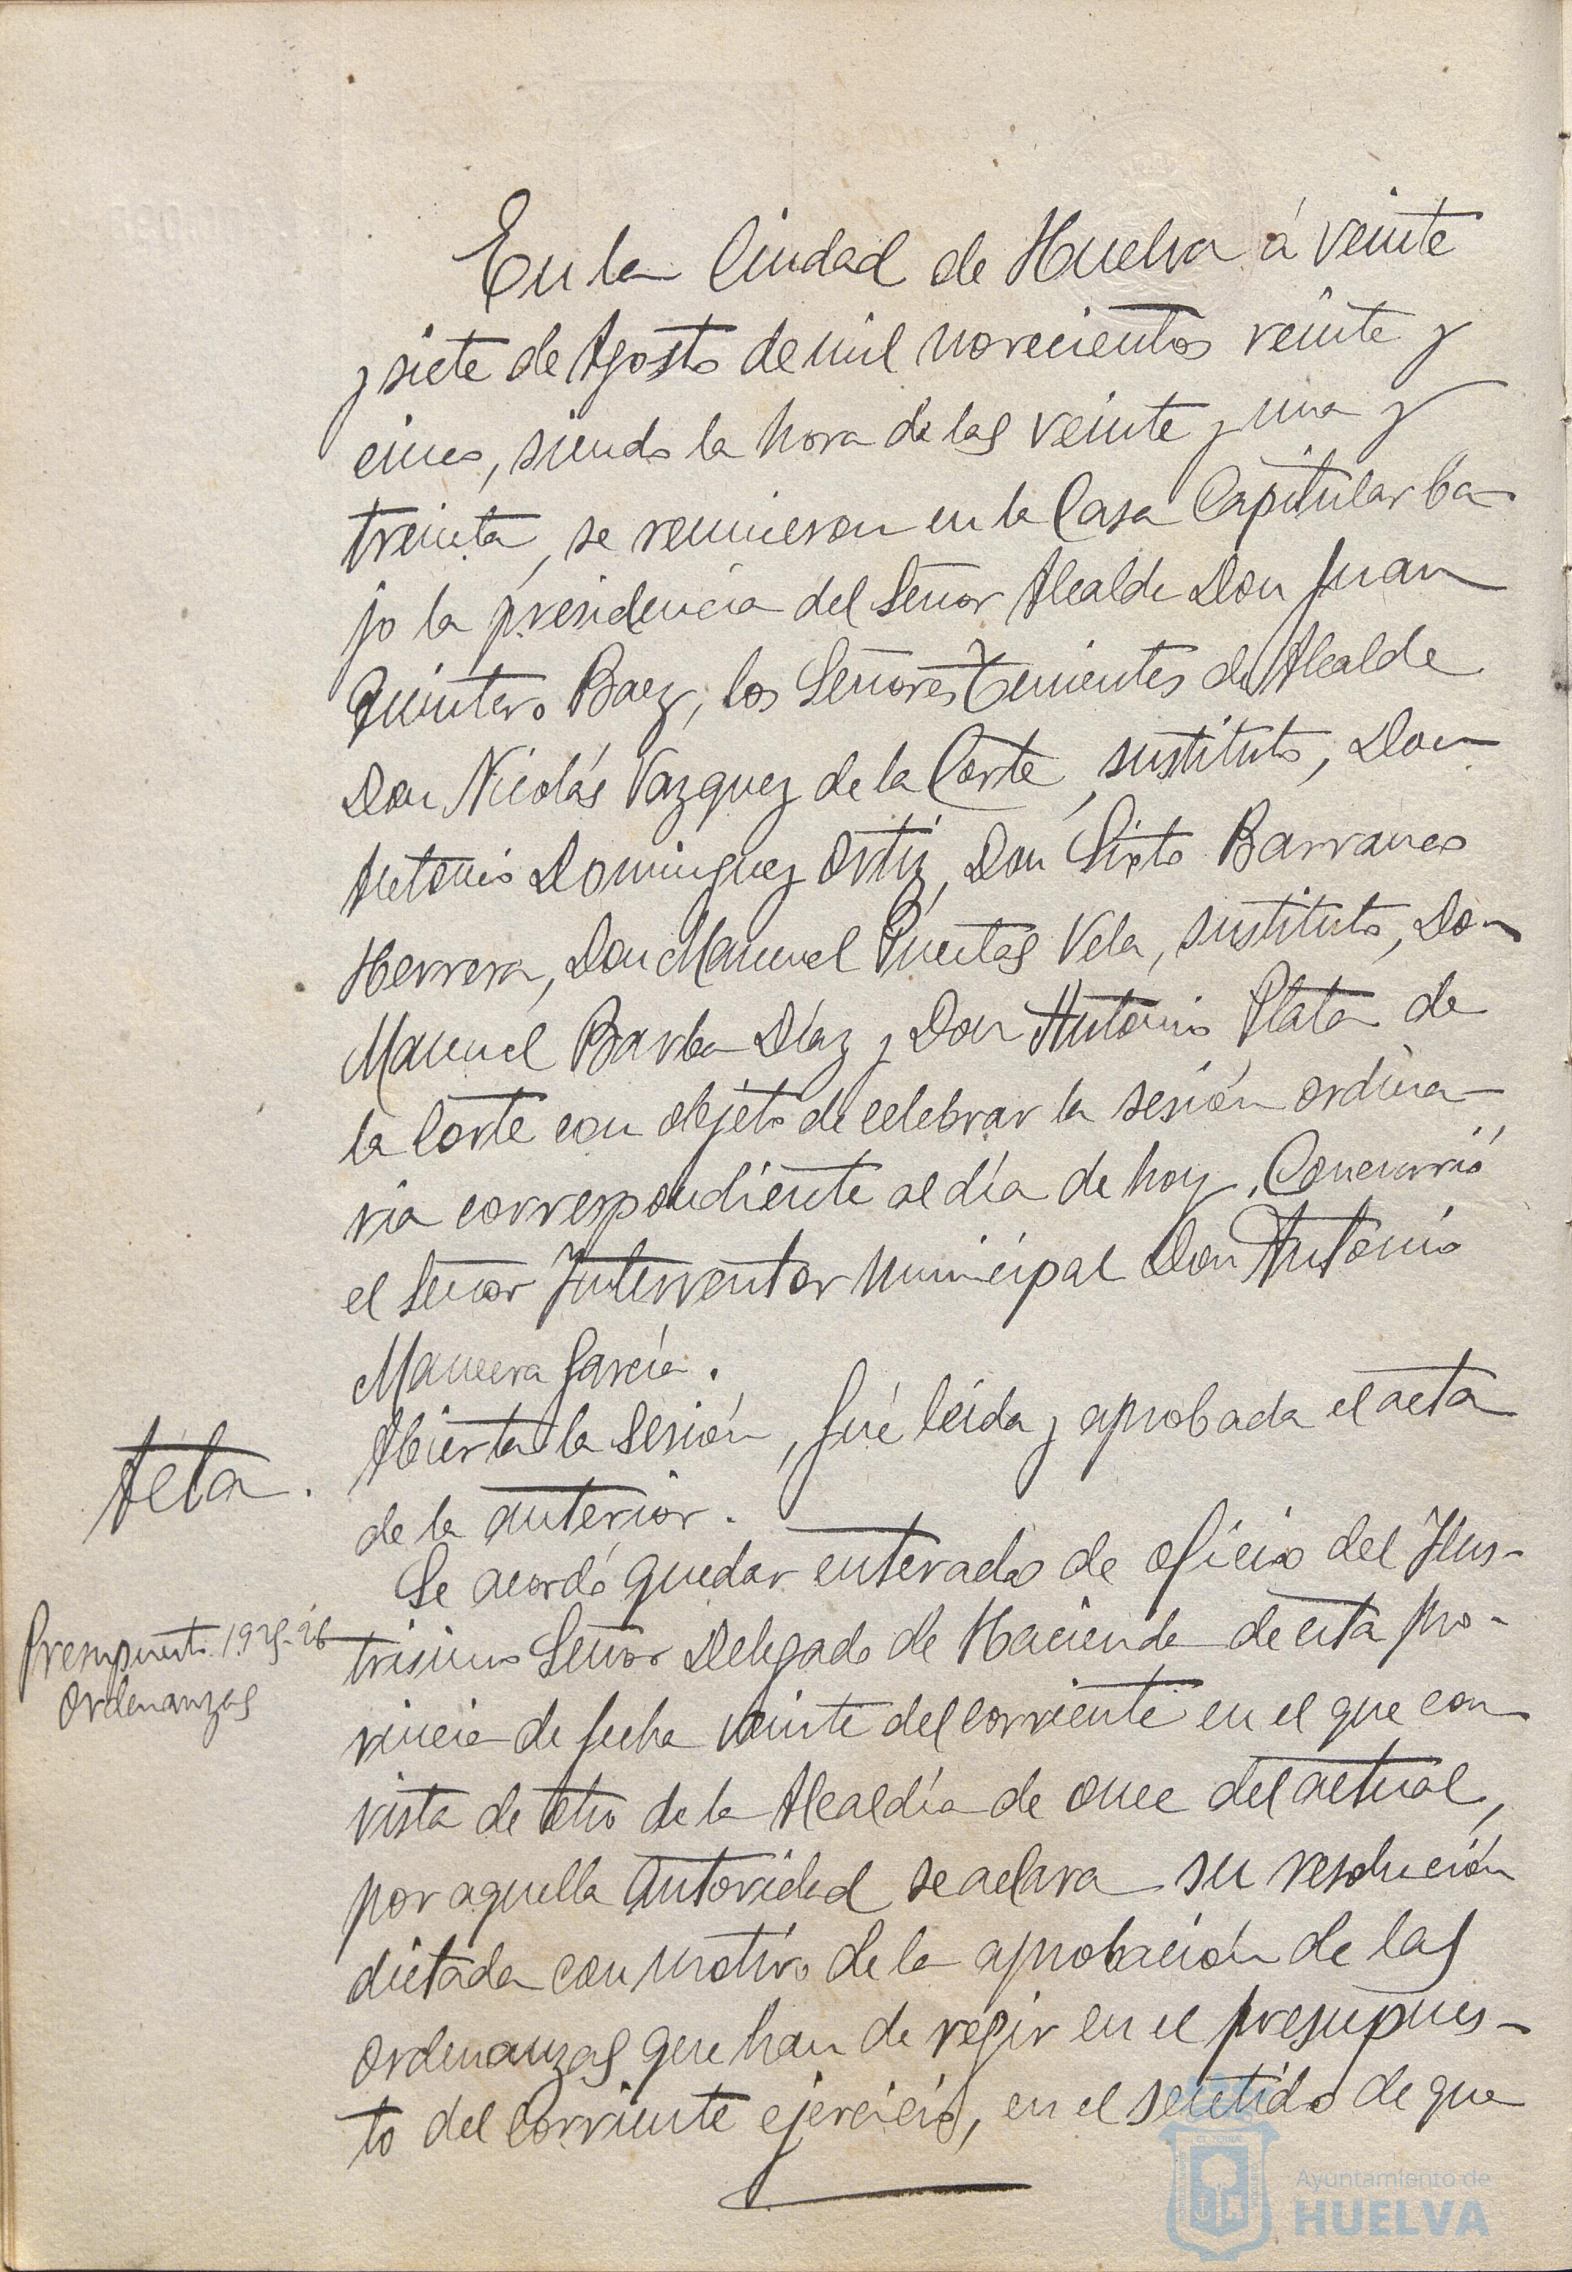 En la Ciudad de Huelva á veinte
y siete de Agosto de mil novecientos veinte y
cinco, siendo la hora de las veinte y una y
treinta, se reunieron en la Casa Capitular ba-
jo la presidencia del Señor Alcalde Don Juan
Quintero Baez, los Señores Tenientes de Alcalde
Don Nicolás Vazquez de la Corte, sustituto, Don
Antonio Dominguez Ortiz, Don Sixto Barranco
Herrera, Don Manuel Puentas Vela, sustituto, Don
Manuel Barba Díaz y Don Antonio Plata de
la Corte con objeto de celebrar la sesión ordina-
ria correspondiente al día de hoy. Concurrió
el Señor Interventor Municipal Don Antonio
Mancera García.
Acta.
Abierta la Sesión, fué leida y aprobada el acta
de la anterior.
Presupuesto 1925-26
Ordenanzas
Se acordó quedar enterado de oficio del Ilus-
trisimo Señor Delegado de Hacienda de esta pro-
vincia de fecha veinte del corriente en el que con
vista de otro de la Alcaldía de once del actual,
por aquella Autoridad se aclara su resolución
dictada con motivo de la aprobación de las
Ordenanzas que han de regir en el presupues-
to del Corriente ejercicio, en el sentido de que
Ayuntamiento de
HUELVA